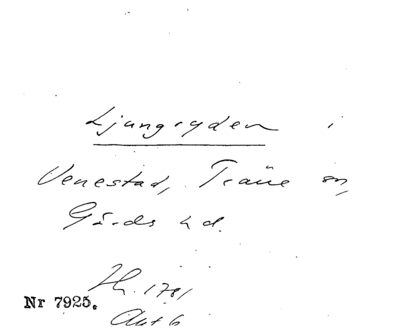 Ljungryden i
Venestad, Träne sn,
Gärds hd.
Hl. 1781
Nr 7925.
Akt 6